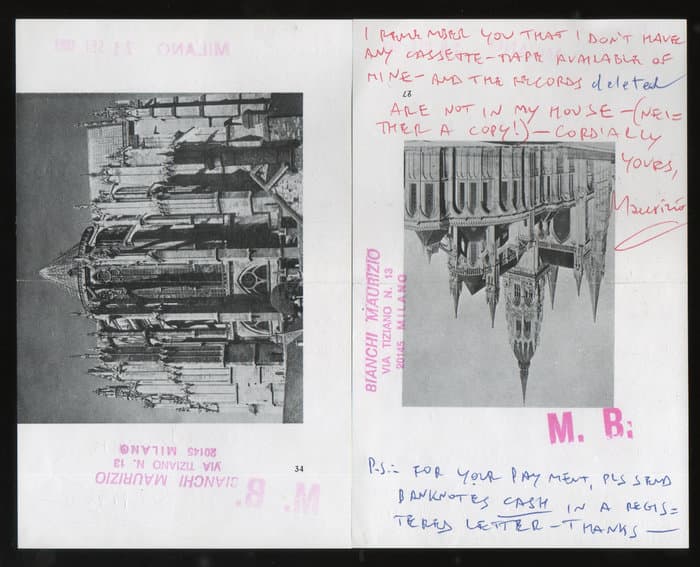 MILANO
20145 MILANO
VIA TIZIANO N. 13
BIANCHI MAURIZIO
M. B.
34
I REMEMBER YOU THAT I DON'T HAVE
ANY CASSETTE-TAPE AVAILABLE OF
MINE - AND THE RECORDS deleted
ARE NOT IN MY HOUSE - (NEI=
THER A COPY!) - CORDIALLY
YOURS,
Maurizio
BIANCHI MAURIZIO
VIA TIZIANO N. 13
20145 MILANO
M. B:
P.S.: FOR YOUR PAYMENT, PLS SEND
BANKNOTES CASH IN A REGIS=
TERED LETTER - THANKS —